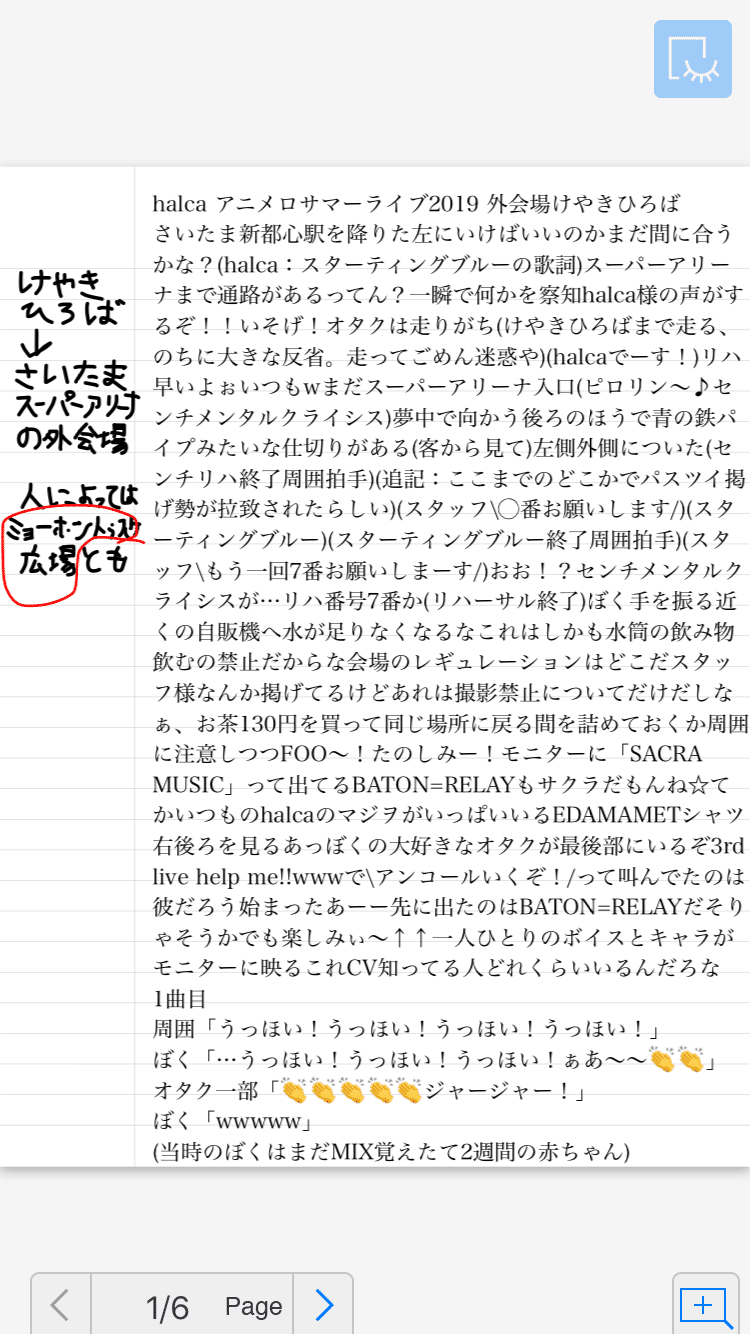 halca アニメロサマーライブ2019 外会場けやきひろば
さいたま新都心駅を降りた左にいけばいいのかまだ間に合う
かな？(halca：スターティングブルーの歌詞)スーパーアリー
ナまで通路があるってん？一瞬で何かを察知halca様の声がす
るぞ！！いそげ！オタクは走りがち(けやきひろばまで走る、
のちに大きな反省。走ってごめん迷惑や)(halcaでーす！)リハ
早いよぉいつもwまだスーパーアリーナ入口(ピロリン〜♪セ
ンチメンタルクライシス)夢中で向かう後ろのほうで青の鉄パ
イプみたいな仕切りがある(客から見て)左側外側についた(セ
ンチリハ終了周囲拍手)(追記：ここまでのどこかでパスツイ掲
げ勢が拉致されたらしい)(スタッフ\◯番お願いします/)(スタ
ーティングブルー)(スターティングブルー終了周囲拍手)(スタ
ッフ\もう一回7番お願いしまーす/)おお！？センチメンタルク
ライシスが…リハ番号7番か(リハーサル終了)ぼく手を振る近
くの自販機へ水が足りなくなるなこれはしかも水筒の飲み物
飲むの禁止だからな会場のレギュレーションはどこだスタッ
フ様なんか掲げてるけどあれは撮影禁止についてだけだしな
ぁ、お茶130円を買って同じ場所に戻る間を詰めておくか周囲
に注意しつつFOO〜！たのしみー！モニターに「SACRA
MUSIC」って出てるBATON=RELAYもサクラだもんね☆て
かいつものhalcaのマジヲがいっぱいいるEDAMAMETシャツ
右後ろを見るあっぼくの大好きなオタクが最後部にいるぞ3rd
live help me!!wwwで\アンコールいくぞ！/って叫んでたのは
彼だろう始まったあーー先に出たのはBATON=RELAYだそり
ゃそうかでも楽しみぃ〜↑↑一人ひとりのボイスとキャラが
モニターに映るこれCV知ってる人どれくらいいるんだろな
1曲目
周囲「うっほい！うっほい！うっほい！うっほい！」
ぼく「…うっほい！うっほい！うっほい！ぁあ〜〜👏👏」
オタク一部「👏👏👏👏👏ジャージャー！」
ぼく「wwwww」
(当時のぼくはまだMIX覚えたて2週間の赤ちゃん)
けやき
ひろば
↓
さいたま
スーパーアリーナ
の外会場
人によっては
広場とも
1/6 Page